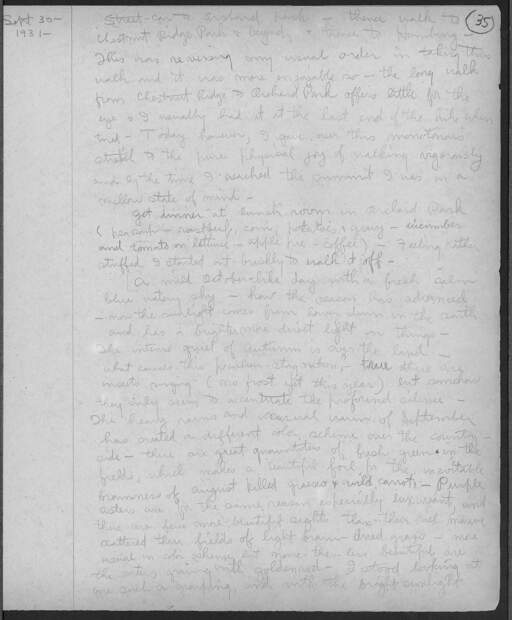 Sept 30-
1931-
35
Street-car to Orchard Park - thence walk to
Chestnut Ridge Park & beyond, & thence to
This was reversing my usual order in taking this
walk and it was more enjoyable so - the long walk
from Chestnut Ridge to Orchard Park offers little for the
eye & I usually had it at the last end of the hike when
tired - Today however, I gave over this monotonous
stretch to the pure physical joy of walking vigorously
and by the time I reached the summit I was in a
mellow state of mind -
Got dinner at lunch room in Orchard Park
( corn, potatoes, & gravy - cucumber
and tomato on lettuce - apple pie - coffee) - Feeling rather
stuffed I started out briskly to walk it off -
A mild October-like day with a fresh calm
blue sky - how the season has advanced
- now the sunlight comes from low down in the
and has a brighter more direct light on things -
The intense quiet of autumn is over the land -
what causes this peculiar stagnation, - true there are
insects singing (no frost yet this year) but somehow
they only seem to accentuate the profound silence -
The heavy rains and unusual of September
has created a different color scheme over the country-
side - there are great quantities of fresh green in the
fields, which makes a beautiful foil for the inevitable
brownness of August killed grasses & wild carrots - Purple
asters are for the same reason especially luxuriant, and
there are few more beautiful sights than their mauve
scattered thru fields of light brown dried grass - more
usual in color scheme, but none the less beautiful are
the asters growing with goldenrod - I stood looking at
one such a grouping, and with the bright sunlight